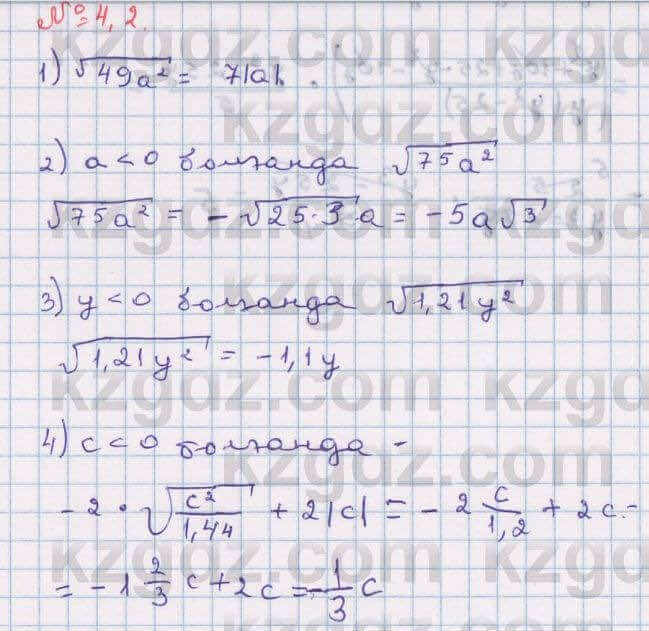 № 4,2.
1) √49a² = 7|a|.
2) a < 0 болғанда √75a²
√75a² = -√25·3 a = -5a√3
3) y < 0 болғанда √1,21y²
√1,21y² = -1,1y
4) c < 0 болғанда -
-2 · √c²/1,44 + 2|c| = -2 c/1,2 + 2c =
= -1 2/3 c + 2c = -1/3 c
kzgdz.com